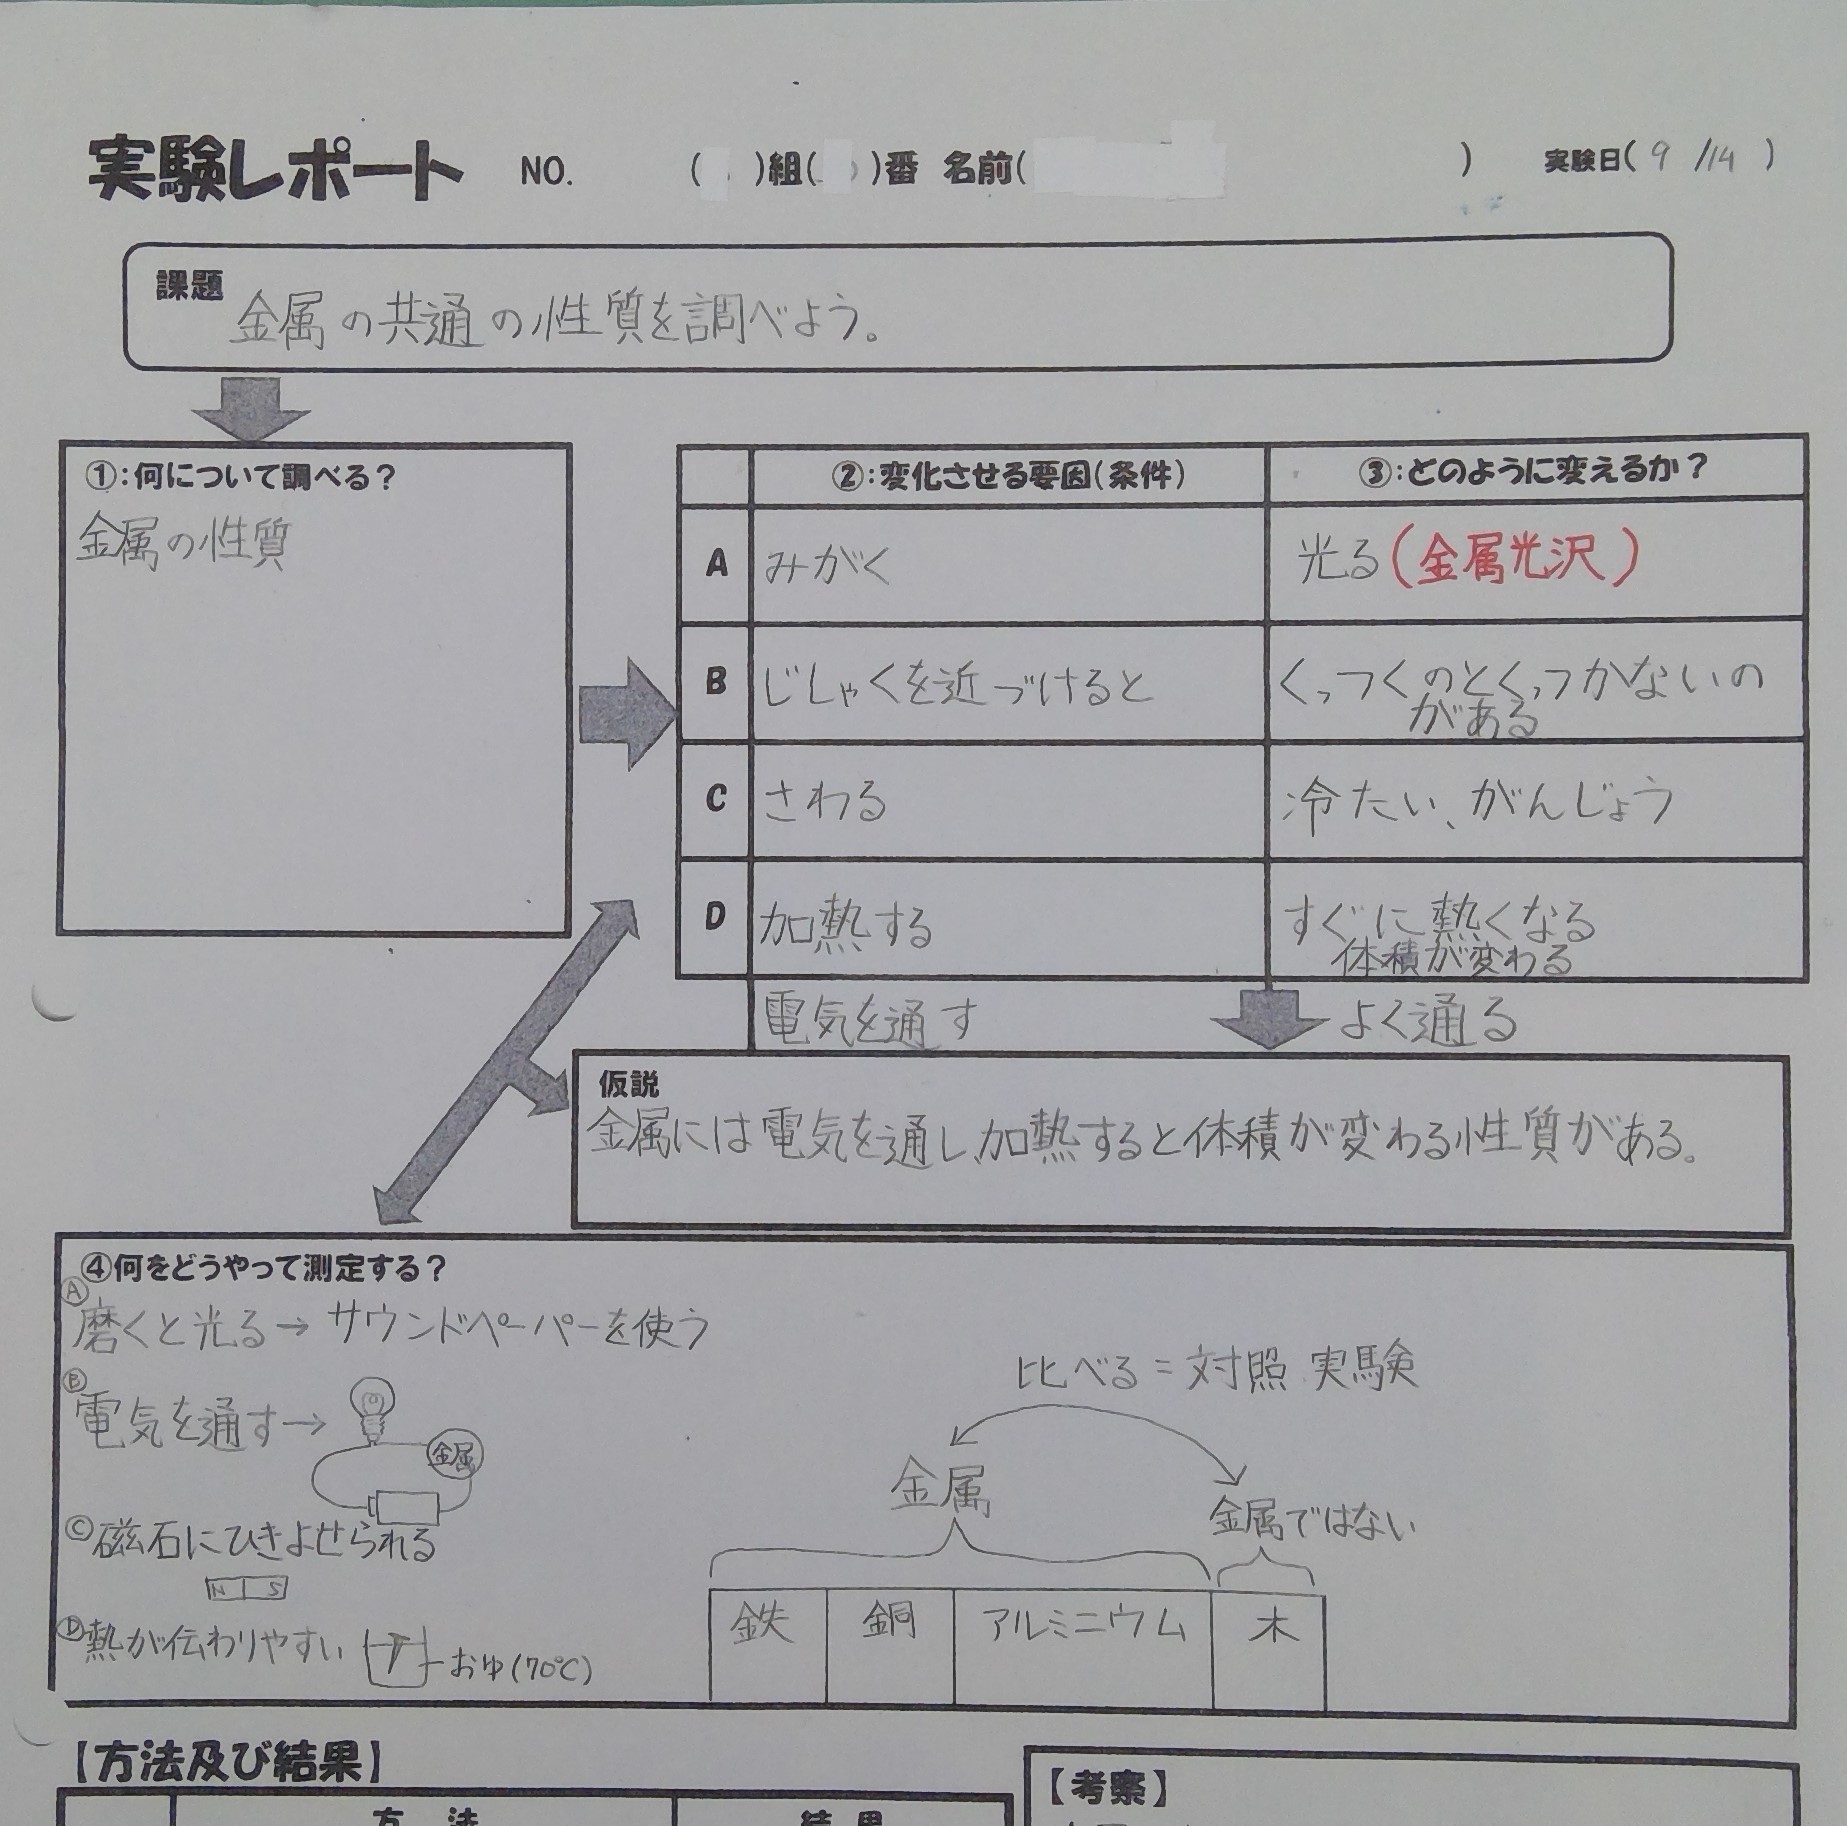 実験レポート NO. ( )組( )番 名前( ) 実験日(9/14)
課題
金属の共通の性質を調べよう。
①:何について調べる？
金属の性質
②:変化させる要因(条件) ③:どのように変えるか？
A みがく 光る(金属光沢)
B じしゃくを近づけると くっつくのとくっつかないの
がある
C さわる 冷たい、がんじょう
D 加熱する すぐに熱くなる
体積が変わる
電気を通す よく通る
仮説
金属には電気を通し、加熱すると体積が変わる性質がある。
④何をどうやって測定する？
Ⓐ磨くと光る→サウンドペーパーを使う
Ⓑ電気を通す→
金属
Ⓒ磁石にひきよせられる
N S
Ⓓ熱が伝わりやすい おゆ(70℃)
比べる=対照実験
金属
金属ではない
鉄 銅 アルミニウム 木
【方法及び結果】
方 法 結 果
【考察】